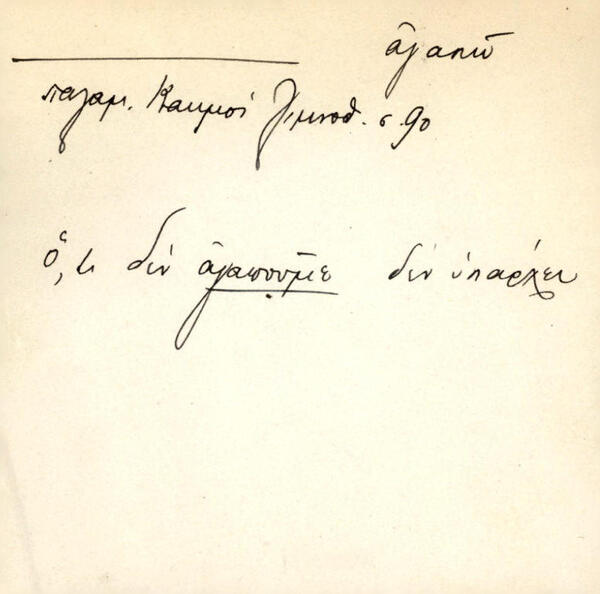 ἀγαπῶ
Παλαμ. Καημοί Λιμνοθ. σ. 90
Ὅ,τι δὲν ἀγαποῦμε δὲν ὑπάρχει